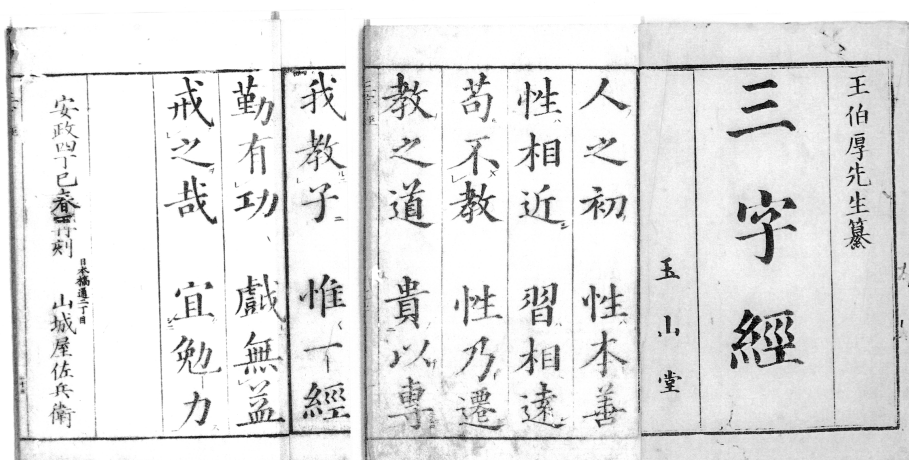 王伯厚先生纂
三字經
玉山堂
人之初 性本善
性相近 習相遠
苟不教 性乃遷
教之道 貴以專
我教子 惟一經
勤有功 戲無益
戒之哉 宜勉力
安政四丁巳春再刻
日本橋通二丁目
山城屋佐兵衛